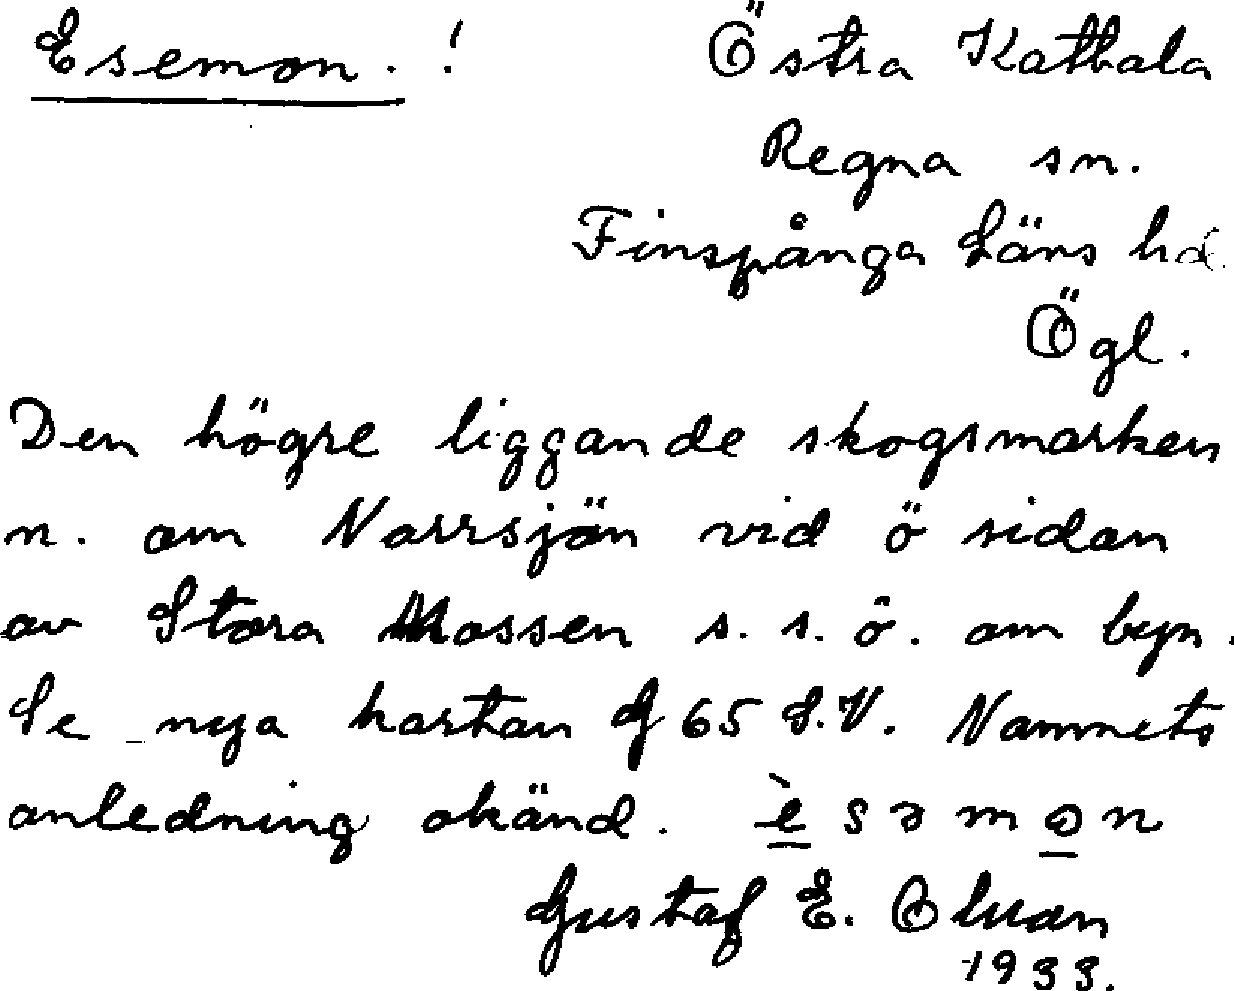 Esemon. ! Östra Kathala
Regna sn.
Finspånga Läns hd.
Ögl.
Den högre liggande skogsmarken
n. om Norrsjön vid ö sidan
av Stora Mossen s. s. ö. om byn.
Se nya kartan G 65 S.V. Namnets
anledning okänd. è s ə m o n
Gustaf E.
1933.